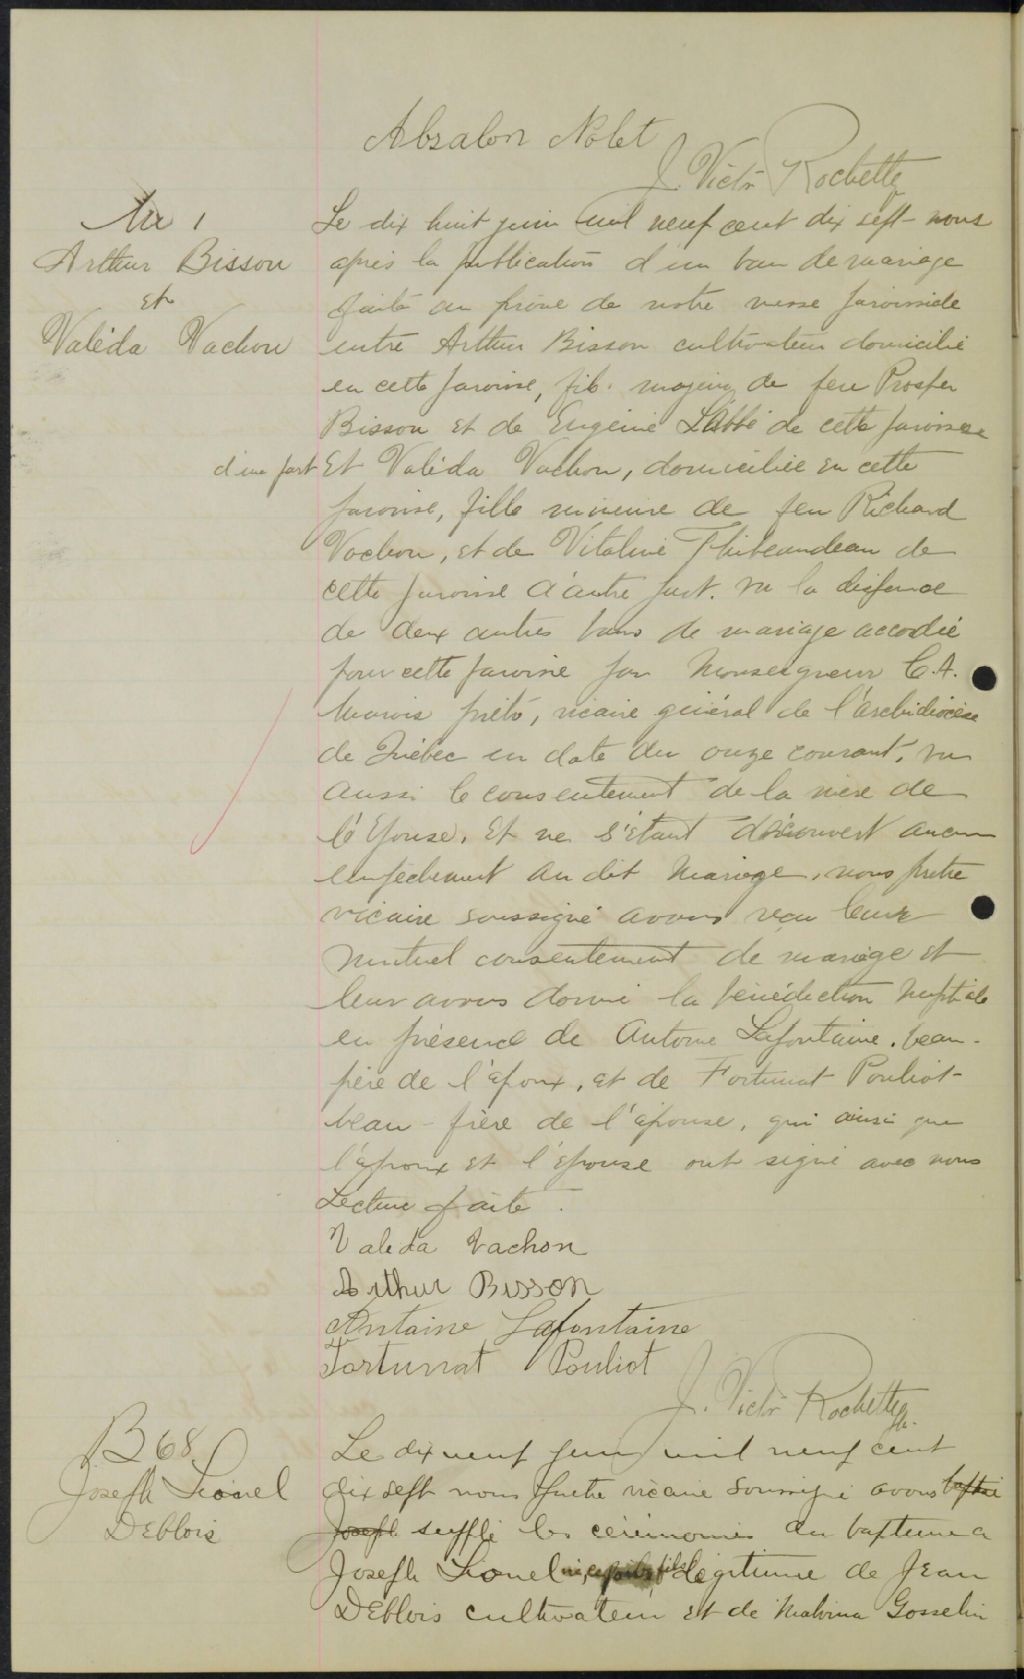 Absalon Nolet
J. Victr Rochette
M 1
Arthur Bisson
et
Valéda Vachon
Le dix huit juin mil neuf cent dix sept nous
après la publication d'un ban de mariage
faite au prône de notre messe paroissiale
entre Arthur Bisson cultivateur domicilié
en cette paroisse, fils majeur de feu Prosper
Bisson et de Eugénie Labbé de cette paroisse
d'une part Et Valéda Vachon, domiciliée en cette
paroisse, fille mineure de feu Richard
Vachon, et de Vitaline Thibeaudeau de
cette paroisse d'autre part. Vu la dispense
de deux autres bans de mariage accordée
pour cette paroisse par Monseigneur C.A.
Marois prêtre, vicaire général de l'archidiocèse
de Québec en date du onze courant, vu
aussi le consentement de la mère de
l'Epouse. Et ne s'étant découvert aucun
empêchement au dit mariage, nous prêtre
vicaire soussigné avons reçu leur
mutuel consentement de mariage et
leur avons donné la bénédiction nuptiale
en présence de Antoine Lafontaine, beau-
père de l'époux, et de Fortunat Pouliot
beau-frère de l'épouse, qui ainsi que
l'époux et l'épouse ont signé avec nous
Lecture faite.
Valeda Vachon
Arthur Bisson
Antaine Lafontaine
Fortunat Pouliot
J. Victr Rochette
B 68
Joseph Lionel
Deblois
Le dix neuf juin mil neuf cent
dix sept nous prêtre vicaire soussigné avons baptisé
Joseph suppléé les cérémonies du baptême a
Joseph Lionel fils légitime de Jean
Deblois cultivateur et de Malvina Gosselin